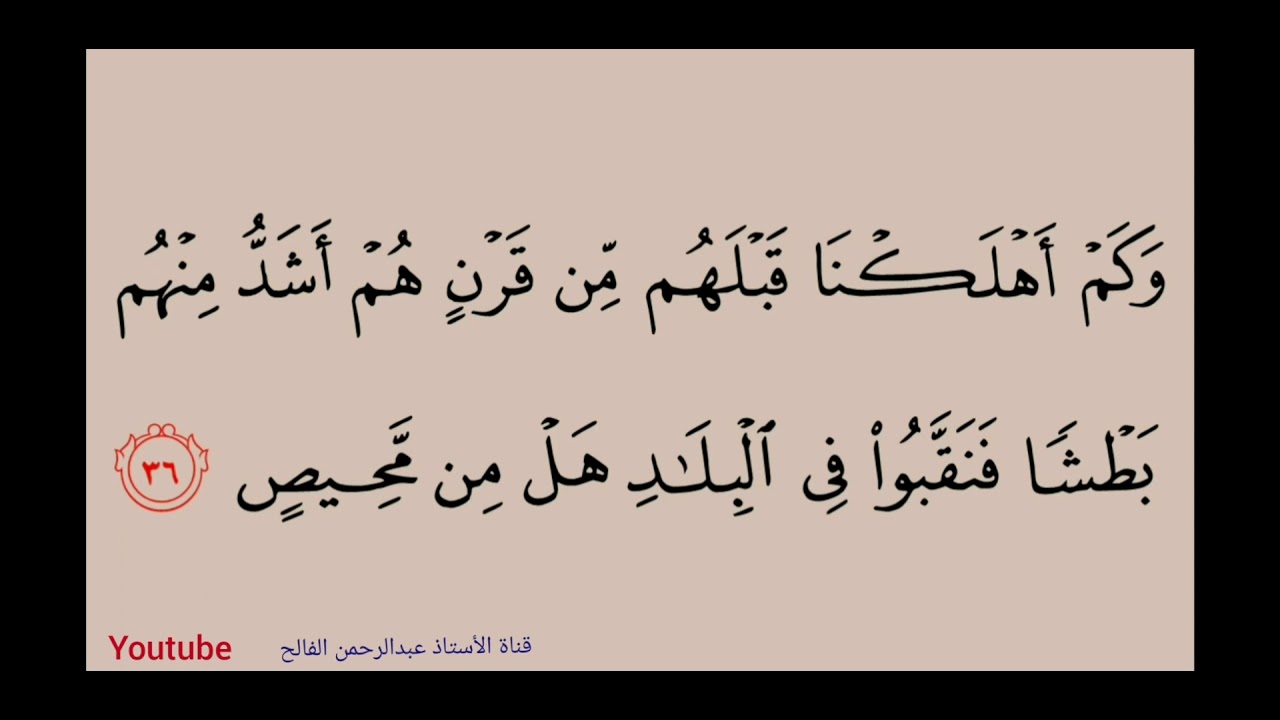 وَكَمۡ أَهۡلَكۡنَا قَبۡلَهُم مِّن قَرۡنٍ هُمۡ أَشَدُّ مِنۡهُم
بَطۡشٗا فَنَقَّبُواْ فِي ٱلۡبِلَٰدِ هَلۡ مِن مَّحِيصٍ ٣٦
Youtube قناة الأستاذ عبدالرحمن الفالح